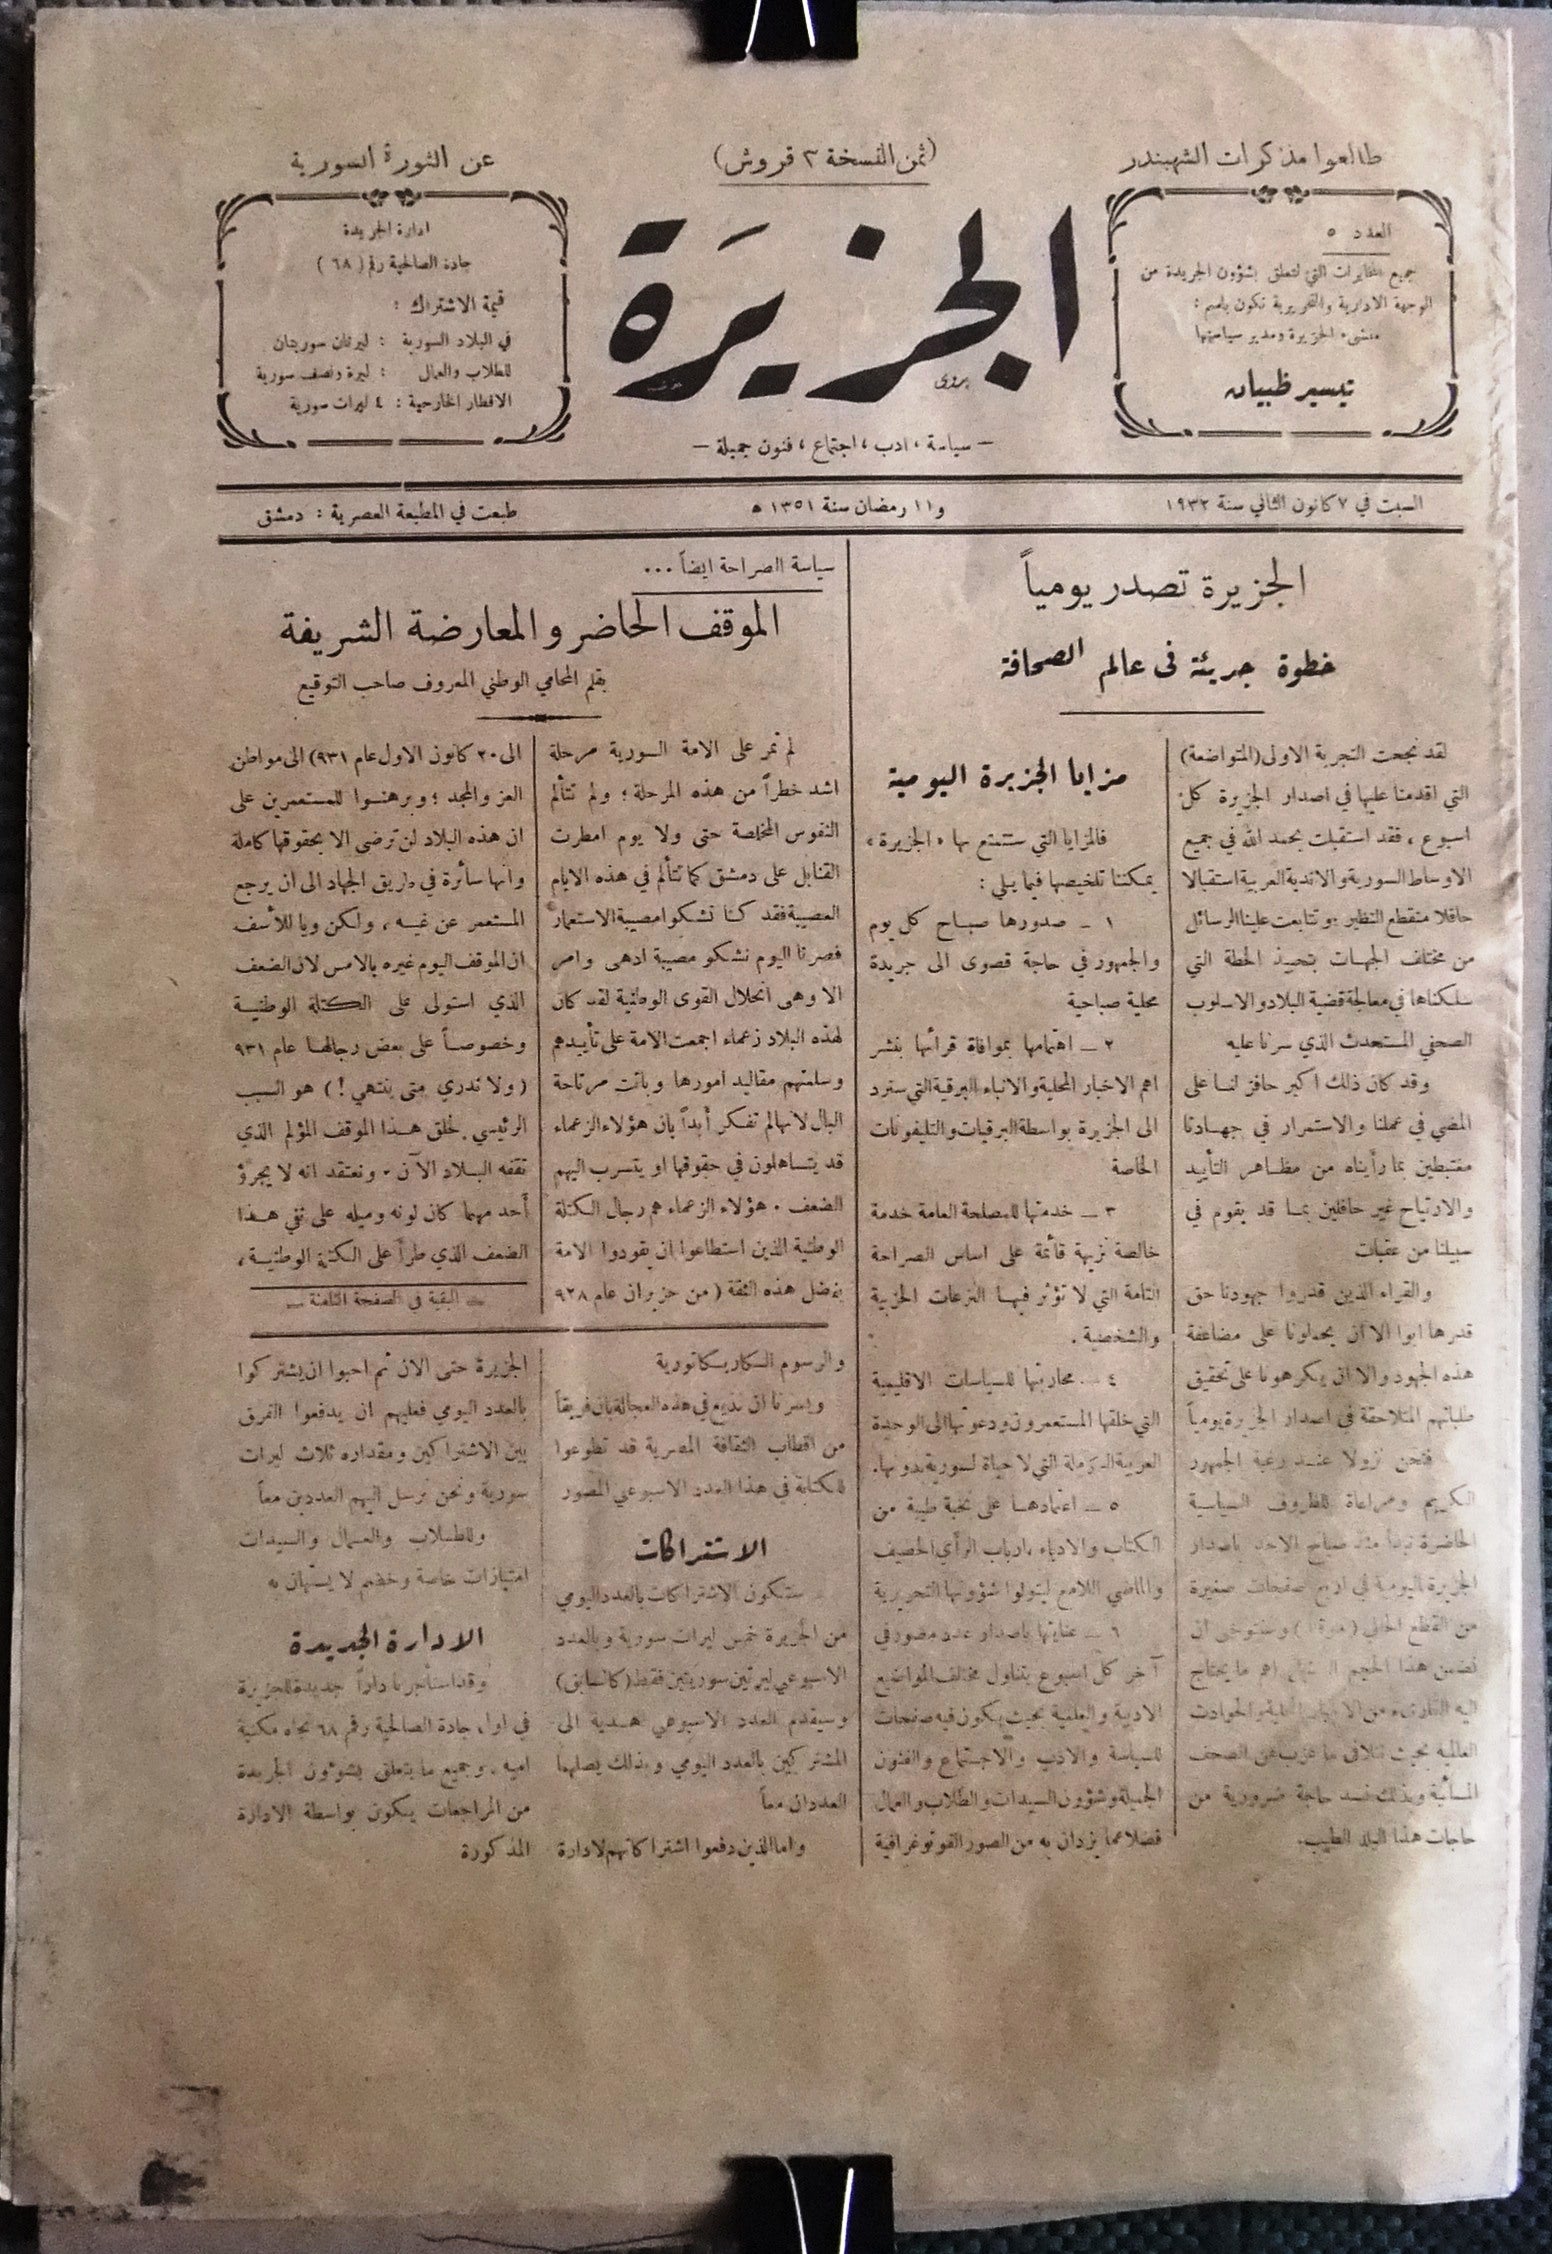 طالعوا مذكرات الشهبندر
(ثمن النسخة ٣ قروش)
عن الثورة السورية
العدد ٥
جميع المخابرات التي لتعلق بشؤون الجريدة من
الوجهة الادارية والتحريرية تكون باسم :
منشىء الجزيرة ومدير سياستها
تيسير ظبيان
الجزيرة
— سياسة ، ادب ، اجتماع ، فنون جميلة —
ادارة الجريدة
جادة الصالحية رقم ( ٦٨ )
قيمة الاشتراك :
في البلاد السورية : ليرتان سوريتان
للطلاب والعمال : ليرة ونصف سورية
الاقطار الخارجية : ٤ ليرات سورية
السبت في ٧ كانون الثاني سنة ١٩٣٢
و ١١ رمضان سنة ١٣٥١ ه
طبعت في المطبعة العصرية : دمشق
الجزيرة تصدر يومياً
خطوة جريئة في عالم الصحافة
لقد نجحت التجربة الاولى (المتواضعة)
التي اقدمنا عليها في اصدار الجزيرة كل
اسبوع ، فقد استقبلت بحمد الله في جميع
الاوساط السورية والاندية العربية استقبالا
حافلا منقطع النظير وتتابعت علينا الرسائل
من مختلف الجهات بتحبيذ الخطة التي
سلكناها في معالجة قضية البلاد والاسلوب
الصحفي المستحدث الذي سرنا عليه
وقد كان ذلك اكبر حافز لنا على
المضي في عملنا والاستمرار في جهادنا
مغتبطين بما رأيناه من مظاهر التأييد
والارتياح غير حافلين بما قد يقوم في
سبيلنا من عقبات
والقراء الذين قدروا جهودنا حق
قدرها ابوا الا ان يحملونا على مضاعفة
هذه الجهود والا ان يكرهونا على تحقيق
طلباتهم المتلاحقة في اصدار الجزيرة يومياً
فنحن نزولا عند رغبة الجمهور
الكريم ومراعاة للظروف السياسية
الحاضرة نبدأ منذ صباح الاحد باصدار
الجزيرة اليومية في اربع صفحات صغيرة
من القطع الحالي وسنتوخى ان
نضمن هذا الحجم اهم ما يحتاج
اليه القارىء من والحوادث
العالمية بحيث نتلافى ما عن الصحف
المسائية وبذلك نسد حاجة ضرورية من
حاجات هذا البلد الطيب.
مزايا الجزيرة اليومية
فالمزايا التي ستتمتع بها «الجزيرة»
يمكننا تلخيصها فيما يلي :
١ ـ صدورها صباح كل يوم
والجمهور في حاجة قصوى الى جريدة
محلية صباحية
٢ ـ اهتمامها بموافاة قرائها بنشر
اهم الاخبار المحلية والانباء البرقية التي سترد
الى الجزيرة بواسطة البرقيات والتليفونات
الخاصة
٣ ـ خدمتها للمصلحة العامة خدمة
خالصة نزيهة قائمة على اساس الصراحة
التامة التي لا تؤثر فيها النزعات الحزبية
والشخصية .
٤ ـ محاربتها للسياسات الاقليمية
التي خلقها المستعمرون ودعوتها الى الوحدة
العربية الكاملة التي لا حياة لسورية بدونها.
٥ ـ اعتمادها على نخبة طيبة من
الكتاب والادباء ارباب الرأي الحصيف
والماضي اللامع ليتولوا شؤونها التحريرية
٦ ـ عنايتها باصدار عدد مصور في
آخر كل اسبوع يتناول مختلف المواضيع
الادبية والعلمية بحيث يكون فيه صفحات
للسياسة والادب والاجتماع والفنون
الجميلة وشؤون السيدات والطلاب والعمال
فضلا عما يزدان به من الصور الفوتوغرافية
والرسوم الكاريكاتورية
ويسرنا ان نذيع في هذه العجالة بان فريقاً
من اقطاب الثقافة المصرية قد تطوعوا
للكتابة في هذا العدد الاسبوعي المصور
الاشتراكات
ستكون الاشتراكات بالعدد اليومي
من الجزيرة خمس ليرات سورية وبالعدد
الاسبوعي ليرتين سوريتين فقط (كالسابق)
وسيقدم العدد الاسبوعي هدية الى
المشتركين بالعدد اليومي وبذلك يصلهما
العددان معاً
واما الذين دفعوا اشتراكاتهم لادارة
الجزيرة حتى الان ثم احبوا ان يشتركوا
بالعدد اليومي فعليهم ان يدفعوا الفرق
بين الاشتراكين ومقداره ثلاث ليرات
سورية ونحن نرسل اليهم العددين معاً
وللطلاب والعمال والسيدات
امتيازات خاصة وخصم لا يستهان به
الادارة الجديدة
وقد استأجرنا داراً جديدة للجزيرة
في اول جادة الصالحية رقم ٦٨ تجاه مكتبة
اميه . وجميع ما يتعلق بشوئون الجريدة
من المراجعات يكون بواسطة الادارة
المذكورة
سياسة الصراحة ايضاً ...
الموقف الحاضر والمعارضة الشريفة
بقلم المحامي الوطني المعروف صاحب التوقيع
لم تمر على الامة السورية مرحلة
اشد خطراً من هذه المرحلة ؛ ولم تتألم
النفوس المخلصة حتى ولا يوم امطرت
القنابل على دمشق كما تتألم في هذه الايام
العصيبة فقد كنا نشكو مصيبة الاستعمار
فصرنا اليوم نشكو مصيبة ادهى وامر
الا وهي انحلال القوى الوطنية لقد كان
لهذه البلاد زعماء اجمعت الامة على تأييدهم
وسلمتهم مقاليد امورها وباتت مرتاحة
البال لانها لم تفكر أبداً بان هؤلاء الزعماء
قد يتساهلون في حقوقها او يتسرب اليهم
الضعف . هؤلاء الزعماء هم رجال الكتلة
الوطنية الذين استطاعوا ان يقودوا الامة
بفضل هذه الثقة ( من حزيران عام ٩٢٨
الى ٢٠ كانون الاول عام ٩٣١) الى مواطن
العز والمجد ؛ وبرهنوا للمستعمرين على
ان هذه البلاد لن ترضى الا بحقوقها كاملة
وانها سائرة في طريق الجهاد الى ان يرجع
المستعمر عن غيه ، ولكن ويا للأسف
ان الموقف اليوم غيره بالامس لان الضعف
الذي استولى على الكتلة الوطنية
وخصوصاً على بعض رجالها عام ٩٣١
( ولا ندري متى ينتهي ! ) هو السبب
الرئيسي لخلق هذا الموقف المؤلم الذي
تقفه البلاد الآن . ونعتقد انه لا يجرؤ
أحد مهما كان لونه وميله على نفي هذا
الضعف الذي طرأ على الكتلة الوطنية ،
— البقية في الصفحة الثامنة —